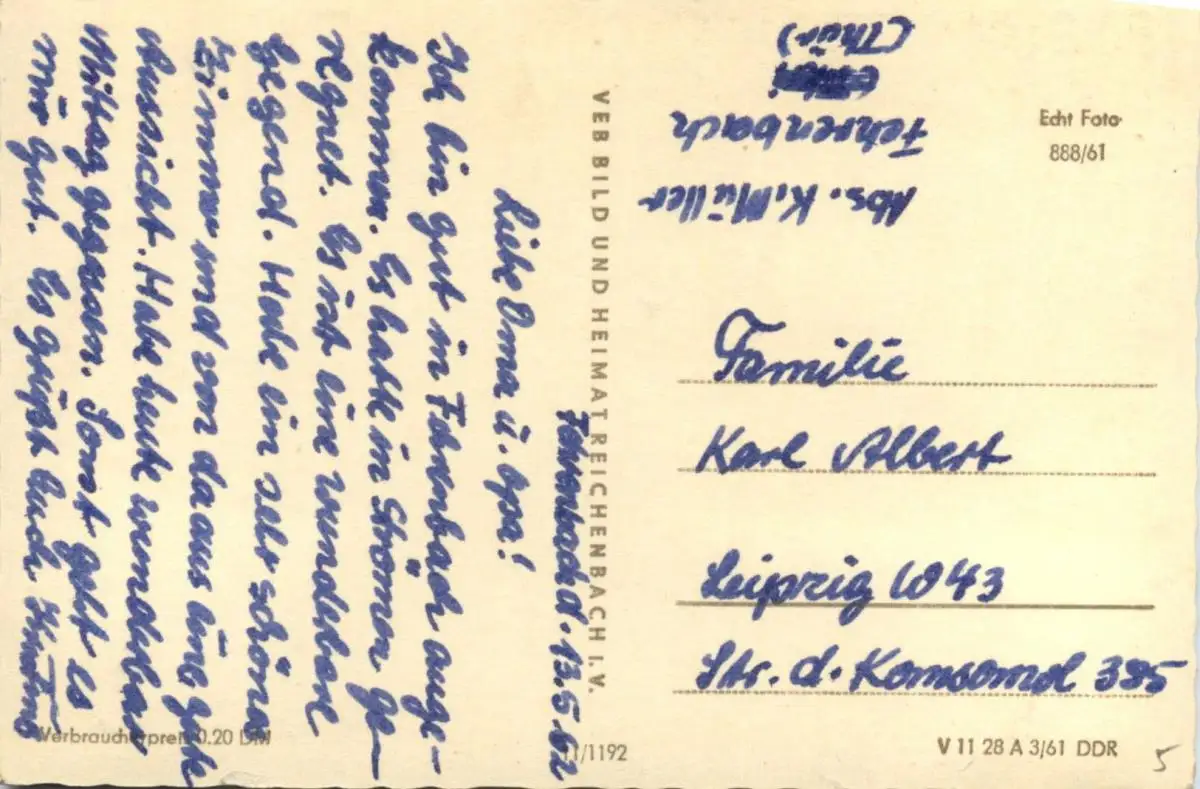 Fehrenbach d. 13.5.62
Liebe Oma u. Opa!
Ich bin gut in Fehrenbach ange-
kommen. Es hatte in Strömen ge-
regnet. Es ist eine wunderbare
Gegend. Habe ein sehr schönes
Zimmer und von da aus eine gute
Aussicht. Habe heute wunderbar
Mittag gegessen. Sonst geht es
mir gut. Es grüßt Euch
VEB BILD UND HEIMAT REICHENBACH I. V.
Abs. K. Müller
Fehrenbach
(Thür)
Echt Foto
888/61
Familie
Karl Albert
Leipzig W 43
Str. d. Komsomol 385
Verbraucherpreis 0.20 DM
/1192
V 11 28 A 3/61 DDR
5